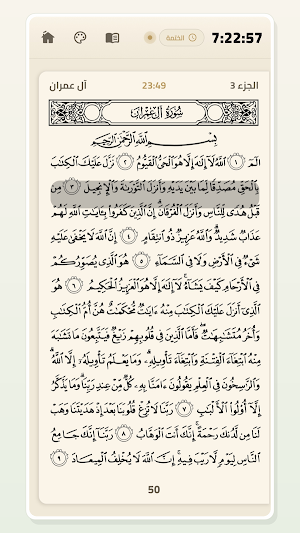 7:22:57
الختمة
آل عمران
23:49
الجزء 3
سُورَةُ آلِ عِمْرَانَ
بِسْمِ اللَّهِ الرَّحْمَٰنِ الرَّحِيمِ
الٓمٓ ١ ٱللَّهُ لَآ إِلَٰهَ إِلَّا هُوَ ٱلْحَىُّ ٱلْقَيُّومُ ٢ نَزَّلَ عَلَيْكَ ٱلْكِتَٰبَ
بِٱلْحَقِّ مُصَدِّقًا لِّمَا بَيْنَ يَدَيْهِ وَأَنزَلَ ٱلتَّوْرَىٰةَ وَٱلْإِنجِيلَ ٣ مِن
قَبْلُ هُدًى لِّلنَّاسِ وَأَنزَلَ ٱلْفُرْقَانَ ۗ إِنَّ ٱلَّذِينَ كَفَرُوا۟ بِـَٔايَٰتِ ٱللَّهِ لَهُمْ
عَذَابٌ شَدِيدٌ ۗ وَٱللَّهُ عَزِيزٌ ذُو ٱنتِقَامٍ ٤ إِنَّ ٱللَّهَ لَا يَخْفَىٰ عَلَيْهِ
شَىْءٌ فِى ٱلْأَرْضِ وَلَا فِى ٱلسَّمَآءِ ٥ هُوَ ٱلَّذِى يُصَوِّرُكُمْ
فِى ٱلْأَرْحَامِ كَيْفَ يَشَآءُ ۚ لَآ إِلَٰهَ إِلَّا هُوَ ٱلْعَزِيزُ ٱلْحَكِيمُ ٦ هُوَ
ٱلَّذِىٓ أَنزَلَ عَلَيْكَ ٱلْكِتَٰبَ مِنْهُ ءَايَٰتٌ مُّحْكَمَٰتٌ هُنَّ أُمُّ ٱلْكِتَٰبِ
وَأُخَرُ مُتَشَٰبِهَٰتٌ ۖ فَأَمَّا ٱلَّذِينَ فِى قُلُوبِهِمْ زَيْغٌ فَيَتَّبِعُونَ مَا تَشَٰبَهَ
مِنْهُ ٱبْتِغَآءَ ٱلْفِتْنَةِ وَٱبْتِغَآءَ تَأْوِيلِهِۦ ۗ وَمَا يَعْلَمُ تَأْوِيلَهُۥٓ إِلَّا ٱللَّهُ ۗ
وَٱلرَّٰسِخُونَ فِى ٱلْعِلْمِ يَقُولُونَ ءَامَنَّا بِهِۦ كُلٌّ مِّنْ عِندِ رَبِّنَا ۗ وَمَا يَذَّكَّرُ
إِلَّآ أُو۟لُوا۟ ٱلْأَلْبَٰبِ ٧ رَبَّنَا لَا تُزِغْ قُلُوبَنَا بَعْدَ إِذْ هَدَيْتَنَا وَهَبْ
لَنَا مِن لَّدُنكَ رَحْمَةً ۚ إِنَّكَ أَنتَ ٱلْوَهَّابُ ٨ رَبَّنَآ إِنَّكَ جَامِعُ
ٱلنَّاسِ لِيَوْمٍ لَّا رَيْبَ فِيهِ ۚ إِنَّ ٱللَّهَ لَا يُخْلِفُ ٱلْمِيعَادَ ٩
50